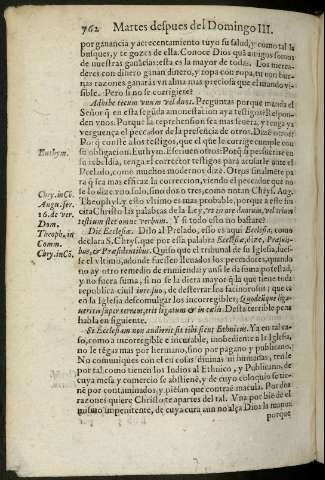 762 Martes despues del Domingo III.
por ganancia y acrecentamiento tuyo su salud, y como tal la
busques, y te gozes de ella. Conoce Dios quã amigos somos
de nuestras ganãcias: esta es la mayor de todas. Los merca-
deres con dinero ganan dinero, y ropa con ropa, tu con bue-
nas razones ganarás vn alma mas preciosa que el mundo vi-
sible. Pero si no se corrigiere?
Adhibe tecum vnum vel duos. Preguntas porque manda el
Señor q̃ en esta segũda amonestacion aya testigos? Respon-
den vnos. Porque la reprehension sea mas seuera, y tenga ya
verguença el peccador de la presencia de otros. Dizẽ otros?
Porq̃ conste a los testigos, que el que le corrige cumple con
su obligacion. Euthym. Escriuen otros: Porq̃ si persistiere en
su rebeldia, tenga el corrector testigos para acusarle ante el
Prelado, como muchos modernos dizẽ. Otros finalmẽte pa
ra q̃ sea mas eficaz la correccion, viendo el peccador que no
se lo dize vno solo, sino dos o tres, como notan Chrys. Aug.
Theophyl. y esto vltimo es mas probable, porque a este fin
cita Christo las palabras de la Ley, vt in ore duorum, vel trium
testium stet omne verbum. Y si todo esto no bastare?
Dic Ecclesiæ. Dilo al Prelado, esso es aqui Ecclesiæ, como
declara S. Chrys. que por esta palabra Ecclesiæ, dize, Præsuli-
bus, & Præsidentibus. Quiso que el tribunal de su Iglesia, fues-
se el vltimo, adonde fuessen lleuados los peccadores, quando
no ay otro remedio de enmienda: y assi le da suma potestad,
y no fuera suma, si no se le diera mayor q̃ la que tiene toda
republica ciuil iure suo, de desterrar los facinorosos: y que es
en la Iglesia descomulgar los incorregibles;
habla en siguiente.
Et Ecclesiam non audierit sit tibi sicut Ethnicus. Ya en tal ca-
so, como a incorregible e incurable, inobediente a la Iglesia,
no le tẽgas mas por hermano, sino por pagano y publicano.
No comuniques con el en cosas diuinas ni humanas, tenle
por tal como tienen los Iudios al Ethnico, y Publicano, de
cuya mesa y comercio se abstienẽ, y de cuyo coloquio se tie-
nẽ por contaminados, y piẽsan que contraẽ macula. Por dos
razones quiere Christo te apartes del tal. Vna por biẽ de el
mismo impenitente, de cuya cura aun no alça Dios la mano:
porque
Euthym.
Chry. in Cã.
Augu. ser.
16. de ver.
Dom.
Theoph. in
Comm.
Chry. in Cã.